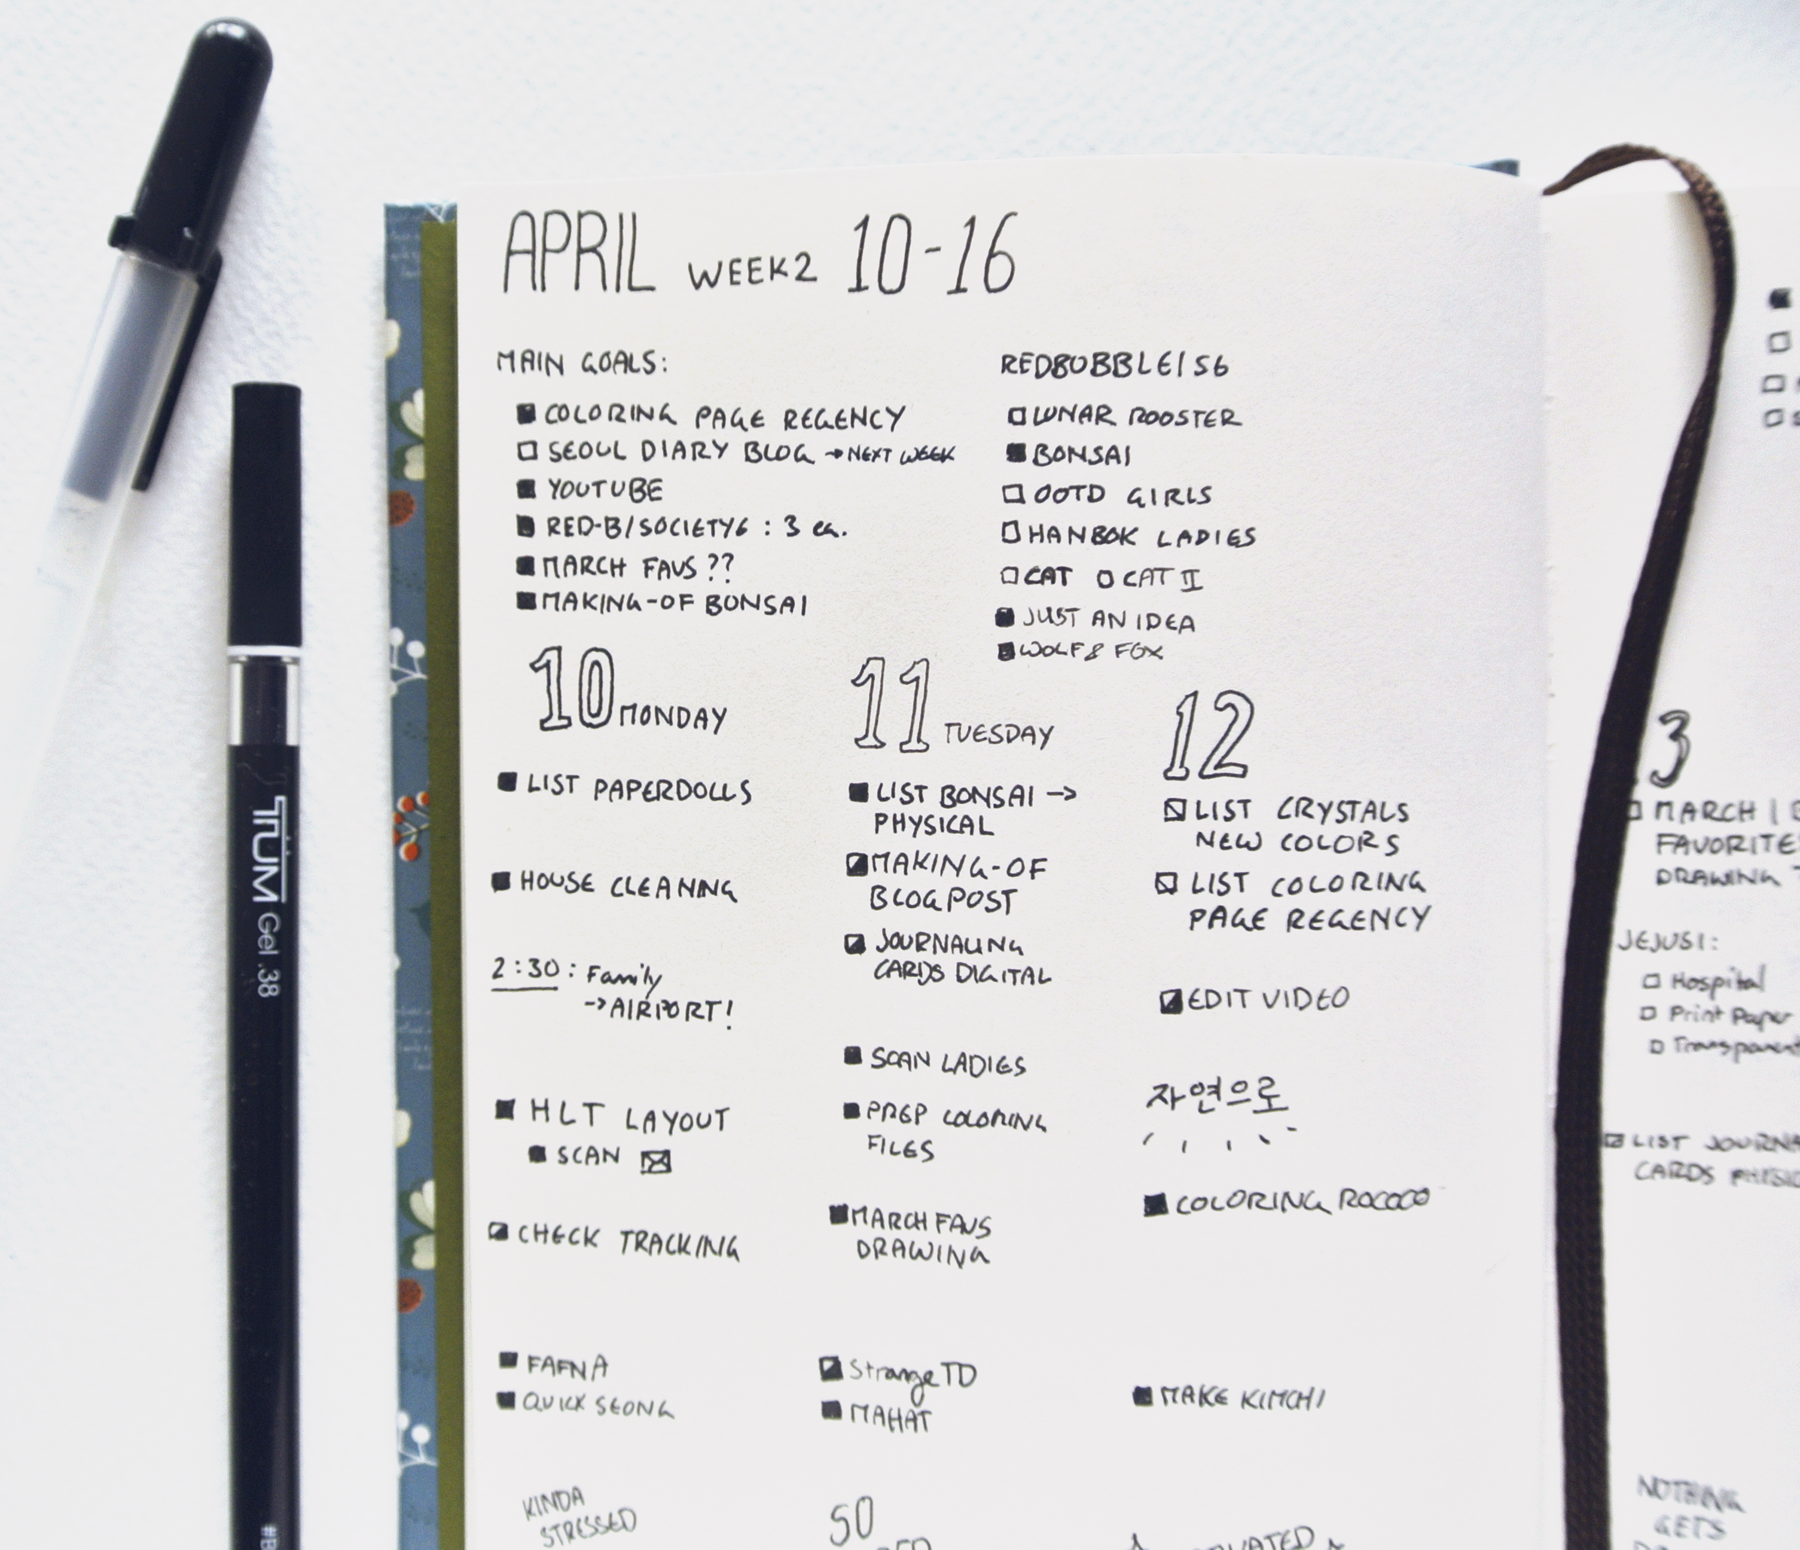 APRIL WEEK2 10-16
MAIN GOALS:
COLORING PAGE REGENCY
SEOUL DIARY BLOG → NEXT WEEK
YOUTUBE
RED-B/SOCIETY6 : 3 ea.
MARCH FAVS ??
MAKING-OF BONSAI
REDBUBBLE/S6
LUNAR ROOSTER
BONSAI
OOTD GIRLS
HANBOK LADIES
CAT CAT II
JUST AN IDEA
WOLF & FOX
10 MONDAY
LIST PAPERDOLLS
HOUSE CLEANING
2:30: Family
→ AIRPORT!
HLT LAYOUT
SCAN
CHECK TRACKING
FAFNA
QUICK SEONG
KINDA
STRESSED
11 TUESDAY
LIST BONSAI →
PHYSICAL
MAKING-OF
BLOGPOST
JOURNALING
CARDS DIGITAL
SCAN LADIES
PREP COLORING
FILES
MARCH FAVS
DRAWING
Strange TD
MAHAT
SO
12
LIST CRYSTALS
NEW COLORS
LIST COLORING
PAGE REGENCY
EDIT VIDEO
자연으로
COLORING ROCOCO
MAKE KIMCHI
3
MARCH
FAVORITE
DRAWING
JEJUSI:
Hospital
Print Paper
Transparent
LIST JOURNA
CARDS PHYSIC
NOTHING
GETS
TRUM Gel .38